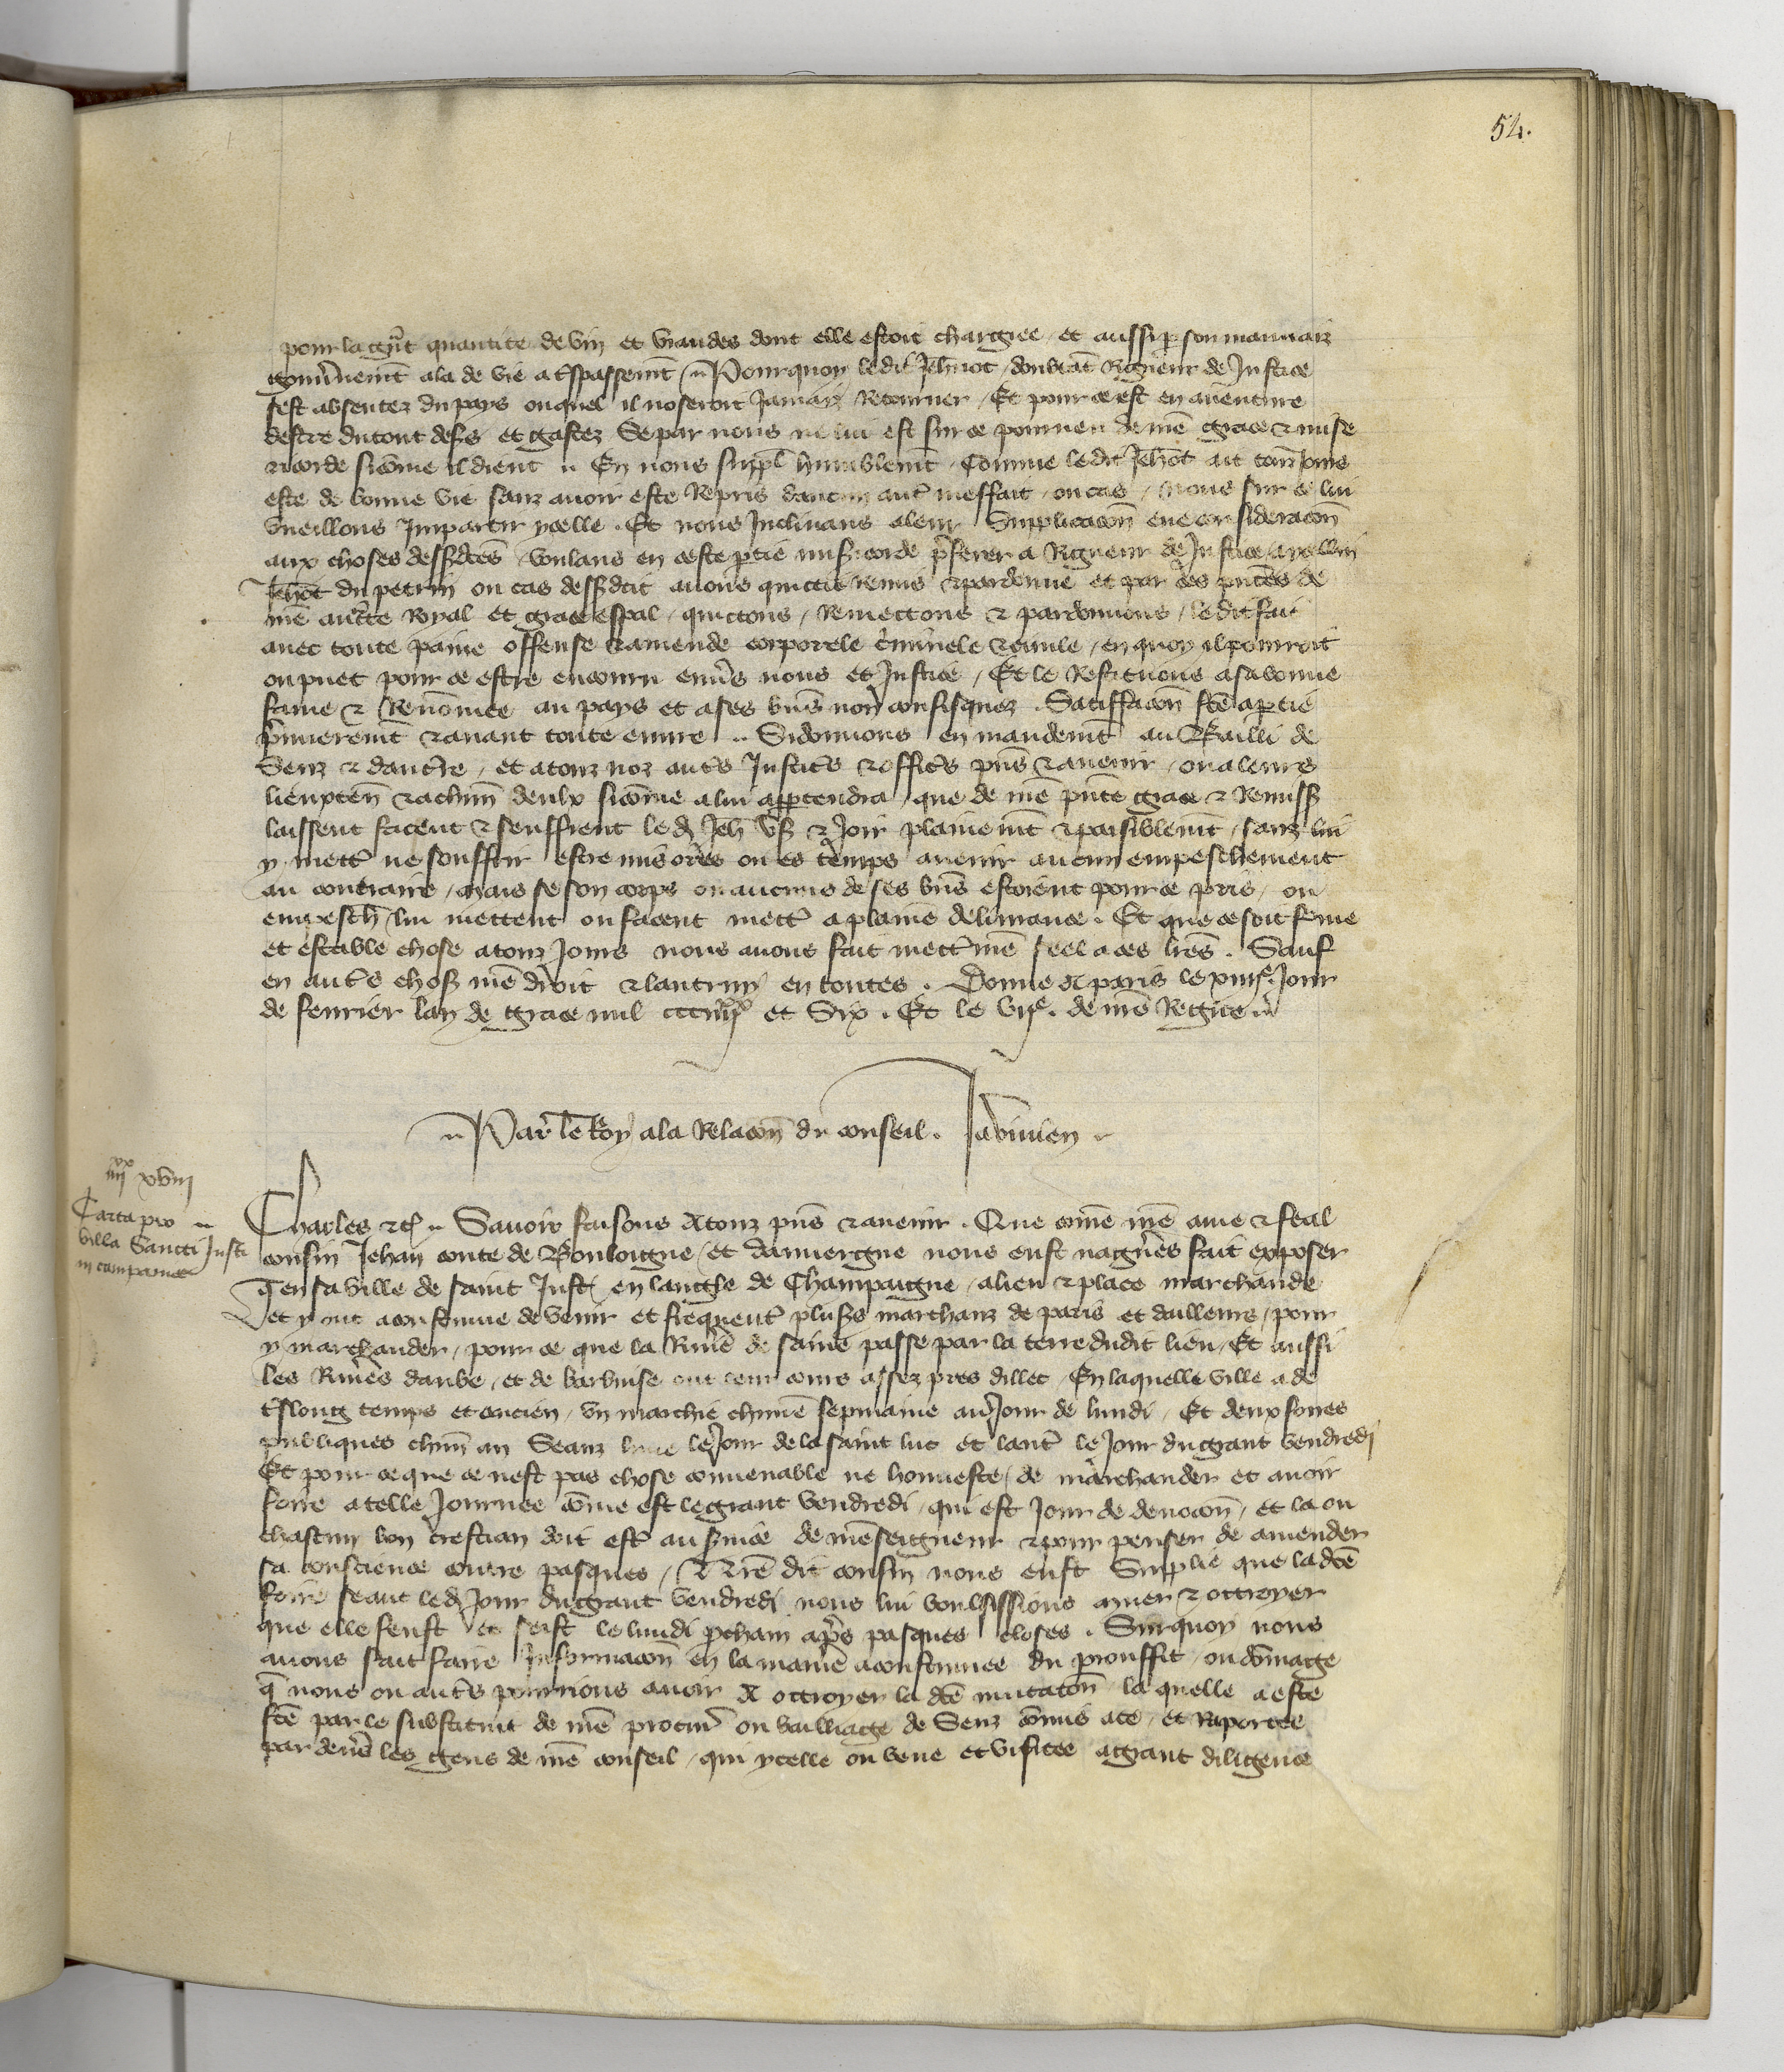 54.
pour la gͬnt quantite de vin et viandes dont elle estoit chargiee / et aussi p son mauvaiz
gouv̾nemt ala de vie a t̾spassemt / Pourquoy ledit Jehnot / doubtāt Rigueur de Justice
sest absentez du pays ouquel il noseroit Jamaiz Retourner / Et pour ce est en aventure
destre du tout dess et gastez Se par nous ne lui est sur ce pourveu de nr̄e grace & mise
ricorde sicōme il dient .. En nous suppl humblemt / Comme ledit Jehōt ait tousjours
este de bonne vie sanz avoir este Repris daucun aut̾ meffait / ou cas / nous sur ce lui
vueillons Impartir ycelle . Et nous Inclinans a leur Supplicacōn eue consideracōn
aux choses dessdc̄es / voulans en ceste ptie misicorde p̄ferer a Rigueur de Justice / aycellui
Jehōt du petrin ou cas dessdit avons quictie remis & pardonne et par ces pn̄tes de
nr̄e auctte Royal et grace espal / quictons / Remectons & pardonnons / le dit fait
avec toute paine offense & amende corporele c̾minele & civile / en quoy il pourroit
ou puet pour ce estre encouru env̾s nous et Justice / Et le Restituons a sa bonne
fame & Renōmee au pays et a ses biēs non confisquez . Satisfacōn fc̄e a ptie
p̄mieremt & avant toute euvre .. Si donnons en mandemt au Bailli de
Senz & dauc̾re / et a touz noz aut̾s Justic̾s & offic̾s pn̄s & avenir / ou a leurs
lieuxten̄ & a chūn deulx sicōme a lui apptendra / que de nr̄e pn̄te grace & Remiss
laissent facent & seuffrent led Jeh̄ us̾ & Joir plainemt & paisiblemt / sanz lui
y mett̾ ne souffrir estre mis ores ou es temps avenir aucun empeschement
au contraire / mais se son corps ou aucuns de ses biēs estoient pour ce pris / ou
empesch̄ / lui mettent ou facent mett̾ a plaine delivrance . Et que ce soit ferme
et estable chose a touz Jours nous avons fait mett̾ nr̄e seel a ces lr̄es . Sauf
en aut̾s chos̾ nr̄e droit & lautruy en toutes . Donne A paris le xiiije Jour
de fevrier lan de grace mil ccciiijxx et Six . Et le vije . de nr̄e Regne ..
.. Par le Roy a la Relacōn du conseil .
iiijxx xviij
Carta pro
villa Sancti Justi
in campania
Charles &c .. Savoir faisons A touz pn̄s & avenir . Que cōme nr̄e ame & feal
cousin Jehan conte de Bouloigne / et dauvergne nous eust nagu̾es fait exposer
q̄ en sa ville de saint Just en langle de Champaigne / a lieu & place marchande
et y ont acoustume de venir et frequent̾ pluss marchanz de paris et dailleurs / pour
y marchander / pour ce que la Riv̾e de saine passe par la terre dudit lieu / Et aussi
les Riv̾es daube / et de barbuise ont leur cours assez pres dillec / En laquelle ville a de
t̾slong temps et ancien / un marchie chūne sepmaine au Jour de lundi / Et deux foires
publiques chūn an Seanz lune le Jour de la saint luc et laut̾ le Jour du grant vendredi
Et pour ce que ce nest pas chose convenable ne honneste / de marchander et avoir
foire a telle Journee cōme est le grant vendredi / qui est Jour de devocōn / et la ou
chascun bon crestian doit est̾ au s̾vice de nr̄eseigneur & pour penser de amender
sa conscience contre pasques / Et nr̄e dit cousin nous eust Supplie que ladc̄e
foire seant led Jour du grant vendredi nous lui voulsissions muer & ottroyer
que elle feust et seist le lundi pchain ap̄s pasques closes . Surquoy nous
avons fait faire Informacōn en la manie acoustumee du prouffit / ou dōmage
q̄ nous ou aut̾s pourrions avoir A ottroyer la dc̄e mutacōn / la quelle a este
fc̄e par le substitut de nr̄e procur̾ ou bailliage de Senz cōmis a ce / et Raportee
par dev̾s les gens de nr̄e conseil / qui ycelle ont veue et visitee a grant diligence